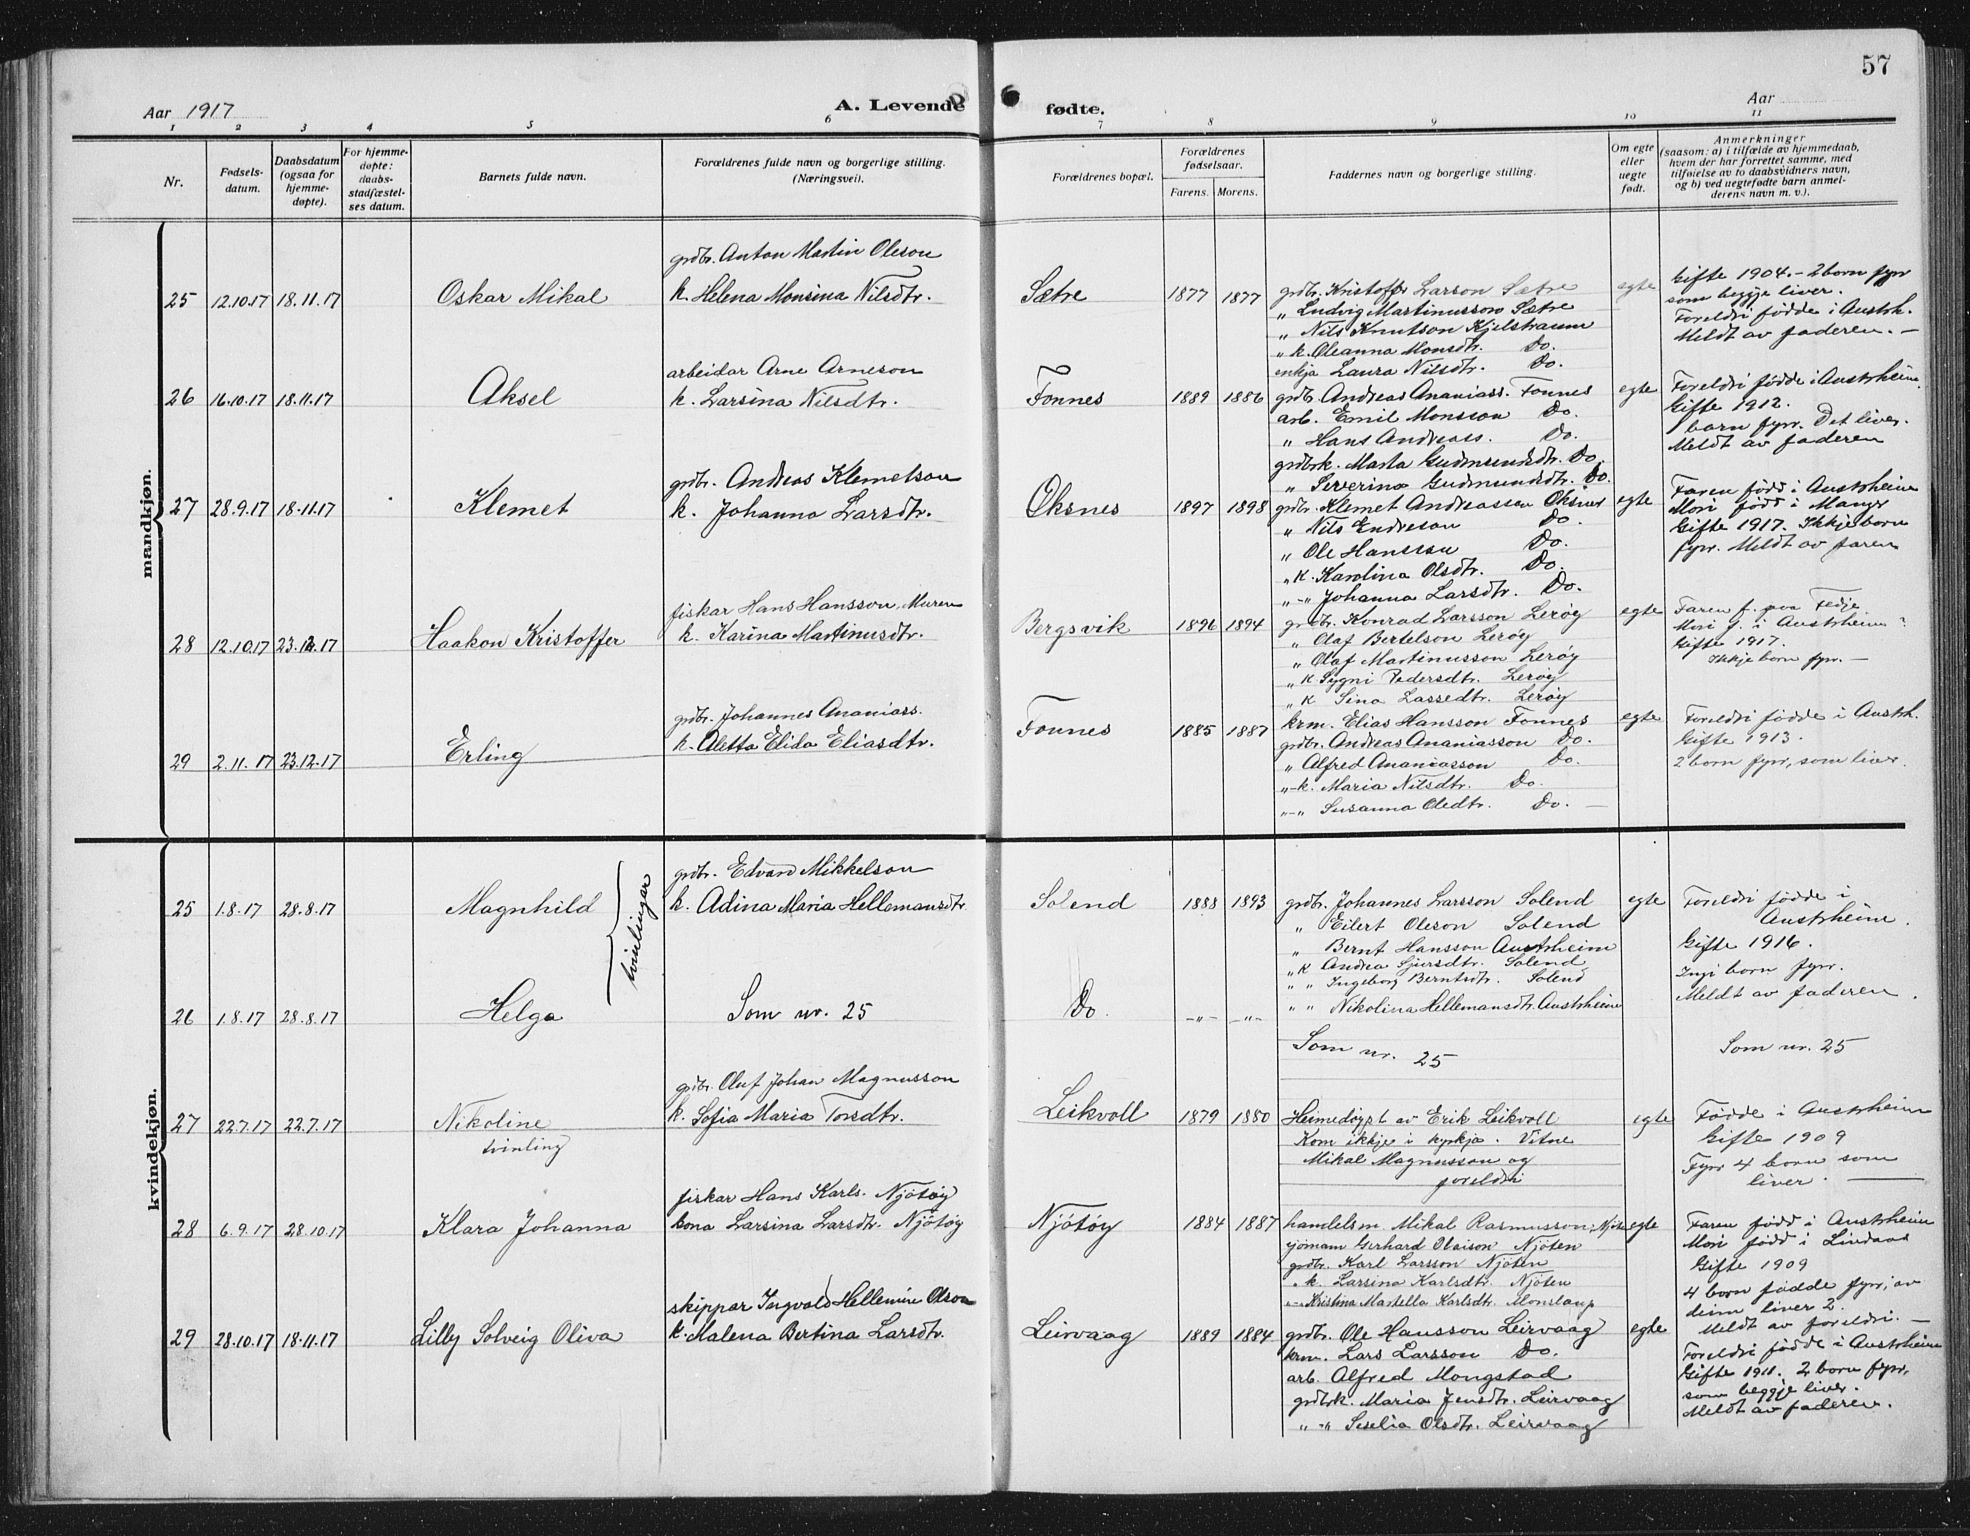 57
Aar 1917
A. Levende fødte.
Aar
1 2 3 4 5 6 7 8 9 10 11
Nr.
Fødsels-datum.
Daabsdatum (ogsaa for hjemme-døpte).
For hjemme-døpte: daabs-stadfæstel-ses datum.
Barnets fulde navn.
Forældrenes fulde navn og borgerlige stilling. (Næringsvei).
Forældrenes bopæl.
Forældrenes fødselsaar.
Farens. Morens.
Faddernes navn og borgerlige stilling.
Om egte eller uegte født.
Anmerkninger
(saasom: a) i tilfælde av hjemmedaab,
hvem der har forrettet samme, med
tilføielse av to daabsvidners navn,
og b) ved uegtefødte barn anmel-
derens navn m. v.).
mandkjøn.
grdbr. Anton Martin Oleson
25 12.10.17 18.11.17 Oskar Mikal k. Helena Monsina Nilsdtr. Sætre 1877 1877 egte
grdbr. Kristoffer Larson Sætre
„ Ludvig Martinusson Sætre
„ Nils Knutson Kjelstraum
„ k. Oleanna Monsdtr. Do.
enkja Laura Nilsdtr. Do.
Gifte 1904. – 2 born fyrr
som beggje liver.
Foreldri fødde i Austrh.
Meldt av faderen. –
arbeidar Arne Arneson
26 16.10.17 18.11.17 Aksel k. Larsina Nilsdtr. Fonnes 1889 1886 egte
grdbr. Andreas Ananiass. Fonnes
arb. Emil Monsson Do.
„ Hans Andreass. Do.
grdbrk. Marta Gudmundsdtr. Do.
„ Severina Gudmundsdtr. Do.
Foreldri fødde i Austrheim.
Gifte 1912.
born fyrr. Det liver.
Meldt av faderen
grdbr. Andreas Klemetson
27 28.9.17 18.11.17 Klemet k. Johanna Larsdtr. Oksnes 1897 1898 egte
grdbr. Klemet Andreasson Oksnes
„ Nils Endreson Do.
„ Ole Hansson Do.
„ k. Karolina Olsdtr. Do.
„ -„- Johanna Larsdtr. Do.
Faren født i Austrheim
Mori født i Manger
Gifte 1917. Ikkje born
fyrr. Meldt av faren
fiskar Hans Hansson, Muren
28 12.10.17 23.12.17 Haakon Kristoffer k. Karina Martinusdtr. Bergsvik 1896 1894 egte
grdbr. Konrad Larsson Lerøy
„ Olaf Bertelson Lerøy
„ Olaf Martinusson Lerøy
„ k. Sygni Pedersdtr. Lerøy
„ k Sina Lassedtr. Lerøy
Faren f. paa Fedje
Mori f. i Austrheim
Gifte 1917.
Ikkje born fyrr. –
grdbr. Johannes Ananiass.
29 2.11.17 23.12.17 Erling k. Aletta Elida Eliasdtr. Fonnes 1885 1887 egte
krm. Elias Hansson Fonnes
grdbr. Andreas Ananiasson Do.
„ Alfred Ananiasson Do.
„ -k. Maria Nilsdtr. Do.
„ -„- Susanna Oledtr. Do. –
Foreldri fødde i Austrh.
Gifte 1913.
2 born fyrr, som liver.
kvindekjøn.
grdbr. Edvard Mikkelson
25 1.8.17 28.8.17 Magnhild k. Adina Maria Hellemansdtr. Solend 1888 1893 egte
tvinlingar
grdbr. Johannes Larsson Solend
„ Eilert Oleson Solend
„ Bernt Hansson Austrheim
„ k Andrea Sjursdtr. Solend
„ „ Ingeborg Berntsdtr. Solend
„ „ Nikolina Hellemansdtr. Austrheim
Foreldri fødde i
Austrheim.
Gifte 1916.
Ingi born fyrr.
Meldt av faderen.
26 1.8.17 28.8.17 Helga Som nr. 25 Do. -„- -„-
Som nr. 25
Som nr. 25
grdbr. Oluf Johan Magnusson
27 22.7.17 22.7.17 Nikoline k. Sofia Maria Torsdtr. Leikvoll 1879 1880 egte
tvinling
Heimedøypt av Erik Leikvoll
Kom ikkje i kyrkja. Vitne
Mikal Magnusson og
foreldri
Fødde i Austrheim
Gifte 1909
Fyrr 4 born som
liver.
fiskar Hans Karls. Njøtøy
28 6.9.17 28.10.17 Klara Johanna kona Larsina Larsdtr. Njøtøy Njøtøy 1884 1887 egte
handelsm. Mikal Rasmusson,
sjømann Gerhard Olaison Njøten
grdbr. Karl Larsson Njøten
„ k. Larsina Karlsdtr. Njøten
„ -„- Kristina Martella Karlsdtr. Monslaup
Faren fødd i Austrheim
Mori fødd i Lindaas
Gifte 1909
4 born fødde fyrr, av
deim liver 2.
Meldt av foreldri. –
skippar Ingvald Hellemine Olson
29 28.10.17 18.11.17 Lilly Solveig Oliva k. Malena Bertina Larsdtr. Leirvaag 1889 1884 egte
grdbr. Ole Hansson Leirvaag
krm. Lars Larsson Do.
arb. Alfred Mongstad
grdbrk. Maria Jensdtr. Leirvaag
„ -„- Seselia Olsdtr. Leirvaag
Foreldri fødde i Austrheim
Gifte 1911. 2 born fyrr,
som beggje liver.
Meldt av faderen.